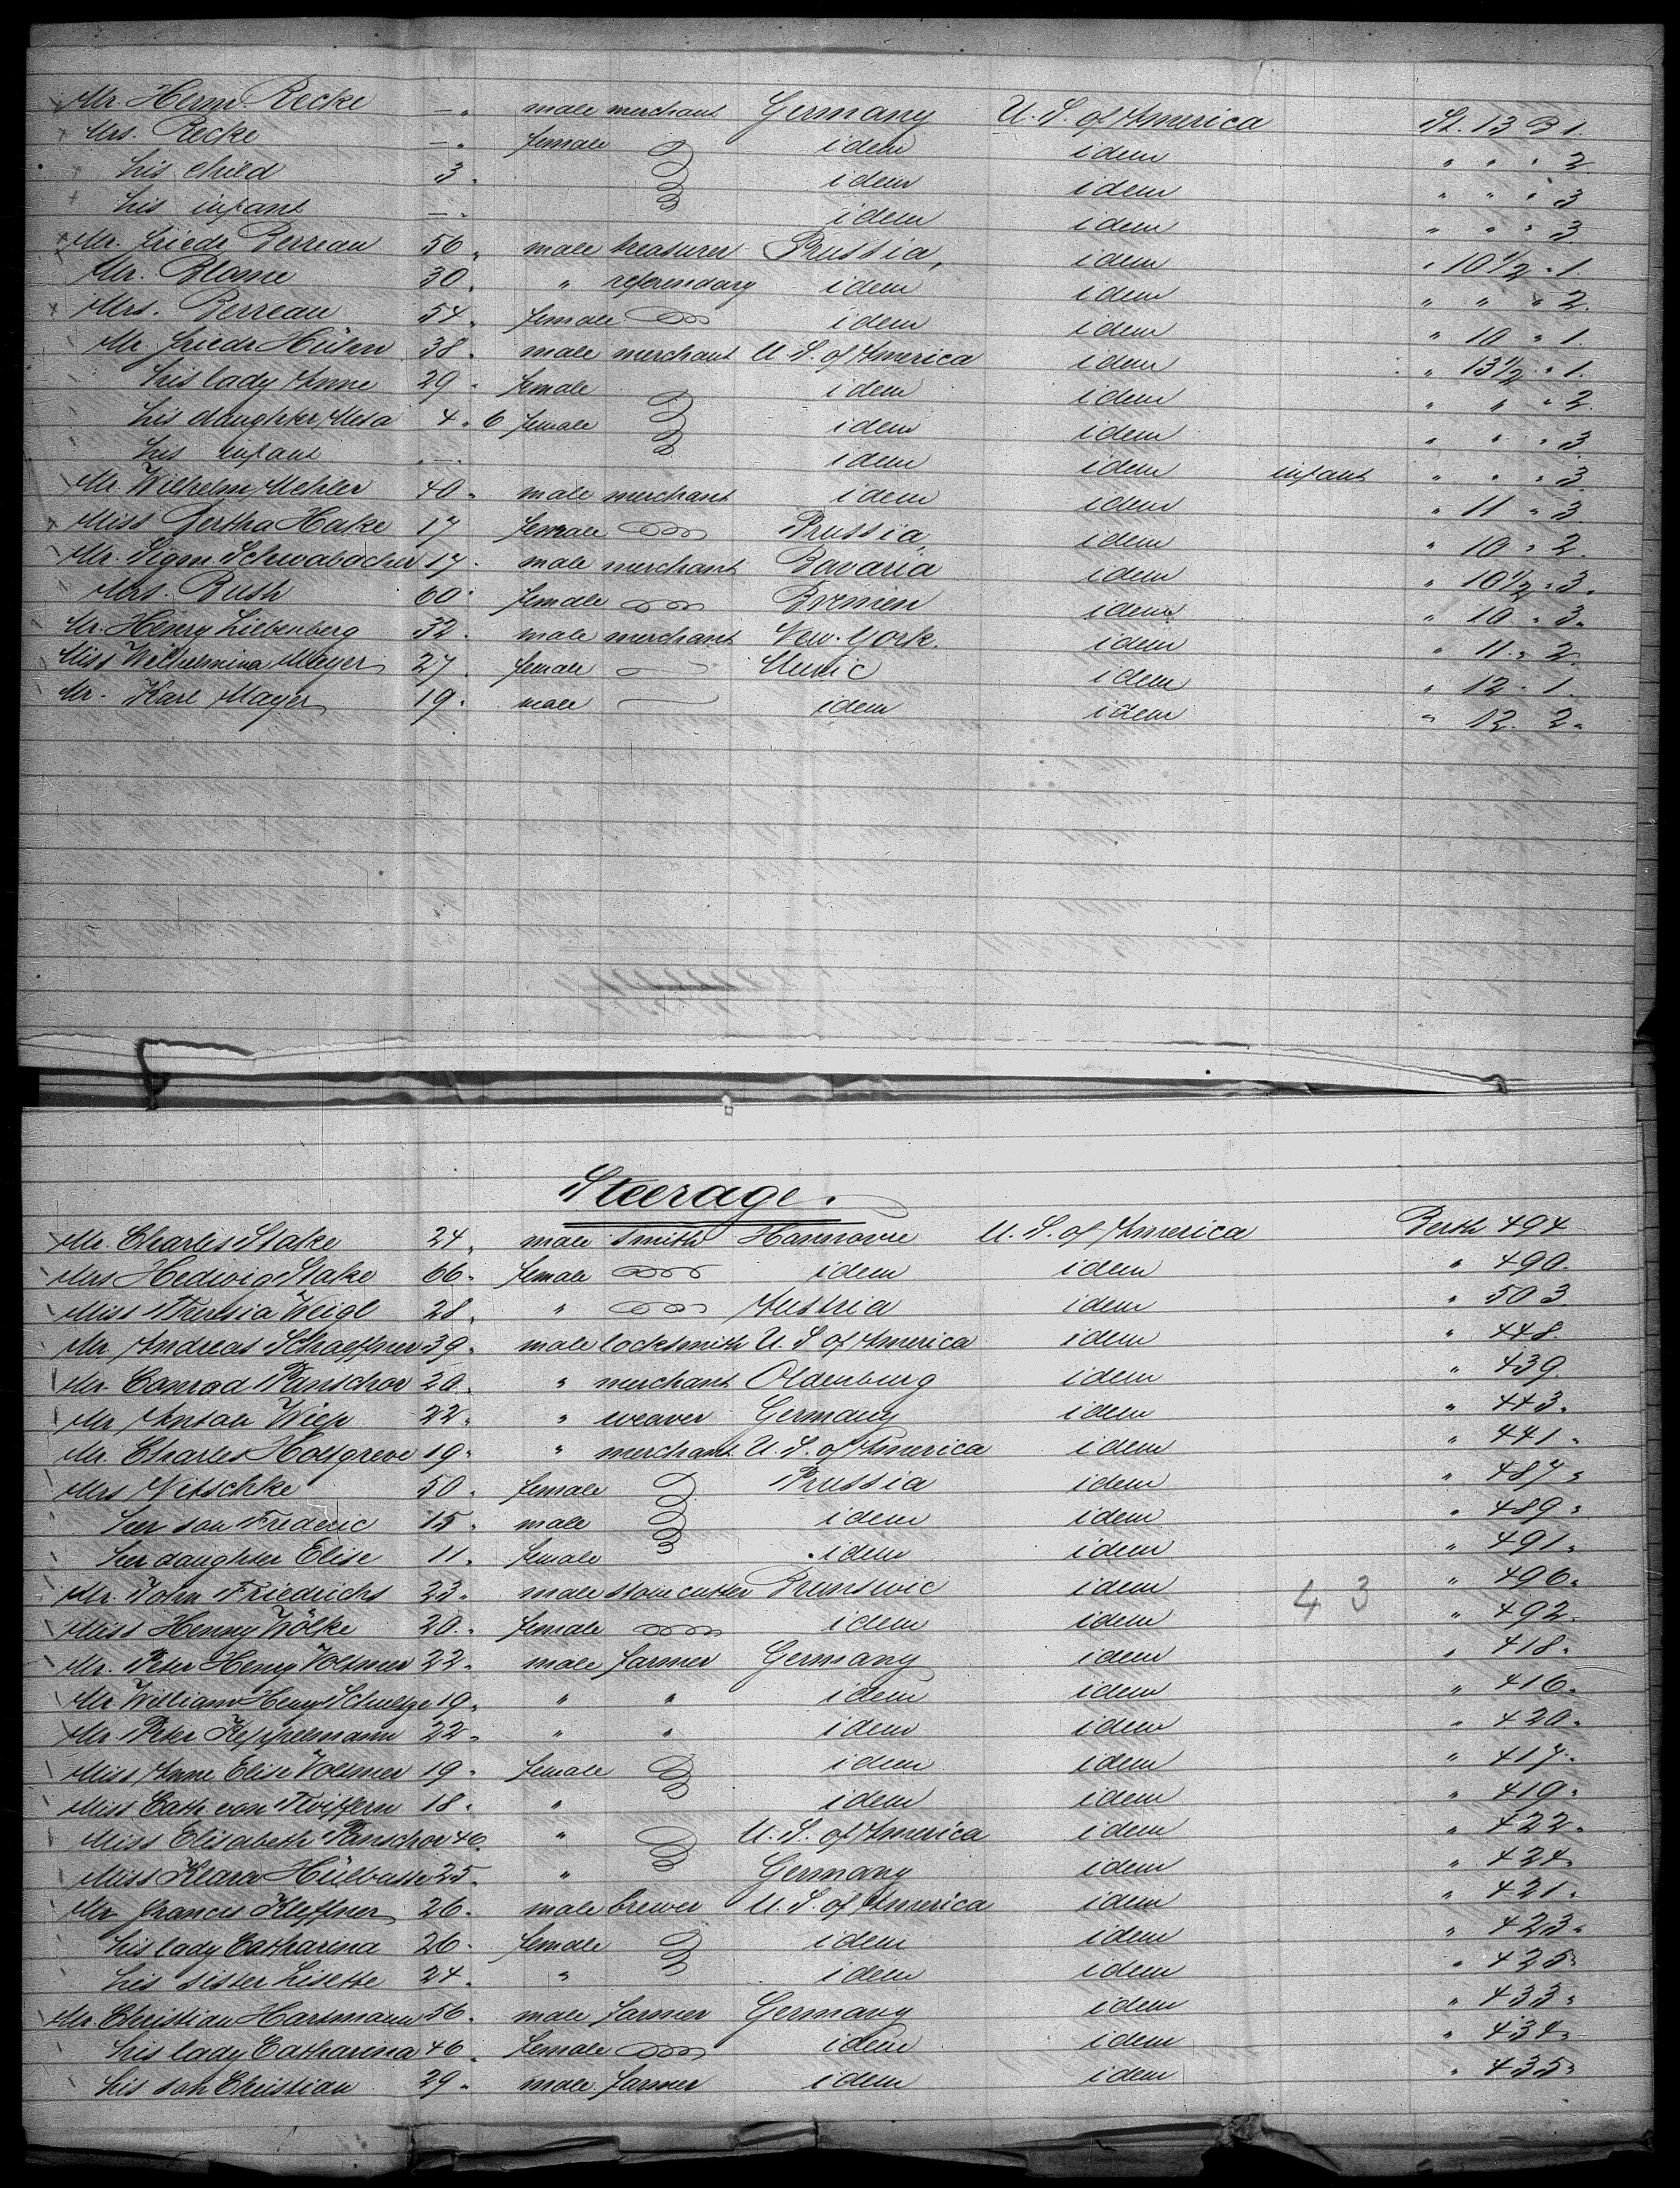 Mr. Herm. Recke — " male merchant Germany U. S. of America St. 13 B 1.
Mrs. Recke — " female idem idem " " " 2.
his child 3 " idem idem " " " 3
his infant — " idem idem " " " 3
Mr. Friedr Berreau 56 " male treasurer Prussia, idem " 10 1/2 " 1.
Mr. Blome 30 " " referendary idem idem " " " 2.
Mrs. Berreau 54 " female idem idem " 10 " 1.
Mr. Friedr Hühn 38 " male merchant U. S. of America idem " 13 1/2 " 1.
his lady Anne 29 " female idem idem " " " 2.
his daughter Meta 4 " 6 female idem idem " " " 3
his infant — idem idem infant " " " 3
Mr. Wilhelm Mehler 40 " male merchant idem idem " 11 " 3
Miss Bertha Hake 17 female Prussia, idem " 10 " 2.
Mr. Sigm Schwabacher 17 " male merchant Bavaria idem " 10 1/2 " 3.
Mrs. Buth 60 " female Bremen idem " 10 " 3.
Mr. Henry Liebenberg 32 " male merchant New-York. idem " 11 " 2.
Miss Wilhelmina Mayer 27 " female Munic idem " 12 " 1.
Mr. Karl Mayer 19 " male idem idem " 12 2.
Steerage.
Mr. Charles Stake 24 " male smith Hannovre U. S. of America Berth 494
Mrs Hedwig Stake 66 " female idem idem " 490.
Miss Theresia Weigl 28 " " Austria idem " 503
Mr Andreas Schaeffner 39 " male locksmith U. S of America idem " 448.
Mr. Conrad Panschor 20 " " merchant Oldenburg idem " 439.
Mr Anton 22 " " weaver Germany idem " 443.
Mr. Charles Holtgreve 19 " " merchant U. S. of America idem " 441 "
Mrs Nitschke 50 " female Prussia idem " 487 "
her son Frederic 15 " male idem idem " 489 "
her daughter Elise 11 " female idem idem " 491 "
Mr. John Friedrichs 23 " male stone cutter Brunswic idem 43 " 496 "
Miss Henny Wölke 20 " female idem idem " 492.
Mr. Peter Henry Voltmer 22 " male farmer Germany idem " 418 "
Mr William Henry Schultze 19 " " " idem idem " 416 "
Mr. Peter Keppelmann 22 " " " idem idem " 420 "
Miss Anne Elise Vollmer 19 " female idem idem " 417 "
Miss Cath von Twistern 18 " " idem idem " 419 "
Miss Elisabeth Panschor 46 " " U. S. of America idem " 422 "
Miss Klara Hülbusse 25 " " Germany idem " 424 "
Mr Francis Kleffner 26 " male brewer U. S of America idem " 421 "
his lady Catharina 26 " female idem idem " 423 "
his sister Lisette 24 " " idem idem " 425 "
Mr. Christian Hartmann 56 " male farmer Germany idem " 433 "
his lady Catharina 46 " female idem idem " 434 "
his son Christian 29 " male farmer idem idem " 435 "